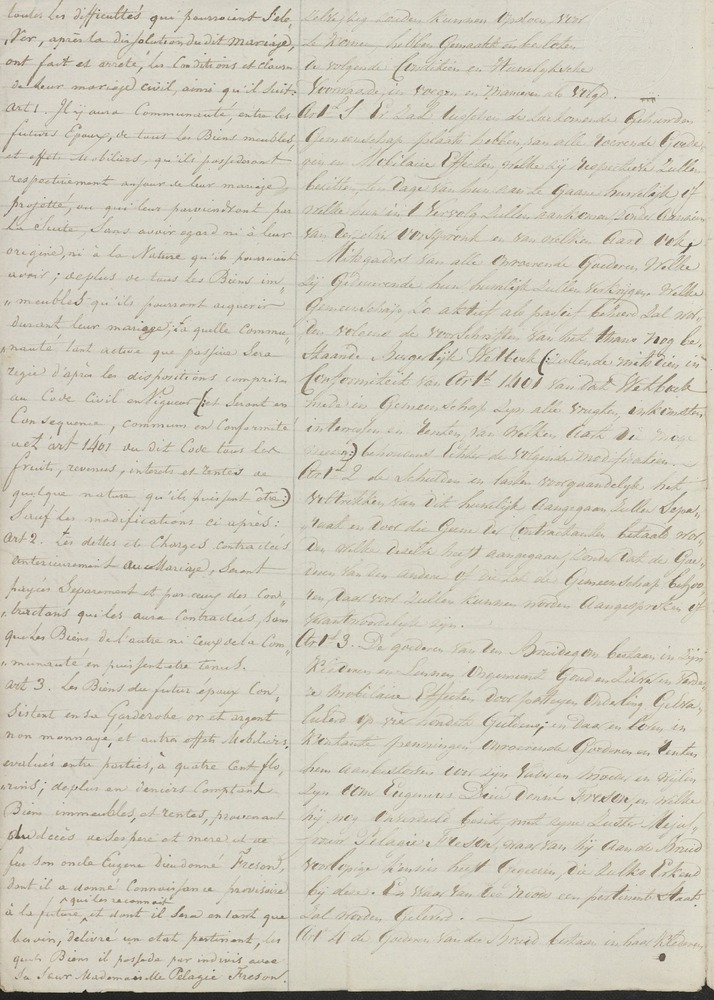 toutes les difficultés qui pourraient s'éle,
"ver, après la dissolution du dit mariage,
ont fait et arrêté, les Conditions et Clauses
de leur mariage civil, ainsi qu'il suit.
art 1. Il y aura Communauté, entre les
futurs Epoux, de tous les Biens meubles,
et effets Mobiliers, qu'ils possederont
respectivement au jour de leur mariage
projetté, ou qui leur parviendront par
la Suite, Sans avoir egard ni à leur
origine, ni à la Nature qu'ils pourraient
avoir; de plus de tous les Biens im=
"meubles qu'ils pourront acquerir
durant leur mariage; la quelle Commu=
"nauté tant active que passive Sera
regie d'après les dispositions comprises
au Code Civil en Vigueur (: et Seront en
Consequence, communs en Conformité
de l'art 1401 du dit Code tous les
fruits, revenus, interets et rentes de
quelque nature qu'ils puissent être:)
Sauf les modifications ci après:
art 2. Les dettes et Charges contractées
anterieurement au Mariage, Seront
payées Separement et par ceux des Con=
"tractans qui les aura Contractées, sans
que les Biens de l'autre ni Ceux de la Com=
"munauté en puissent être tenus.
art 3. Les Biens du futur époux Con,
Sistent en Sa Garderobe or et argent
non monnayé, et autres effets Mobiliers,
evalués entre parties, à quatre Cent flo,
"rins; de plus en deniers Comptant
Biens immeubles, et rentes, provenant
du decès de Ses pere et mere et de
feu Son oncle Eugene Dieudonné Freson,
dont il a donné Connaissance provisoire
à la future, qui les reconnait et dont il Sera en tant que
besoin, delivré un etat pertinent, les
quels Biens il possede par indivis avec
Sa Sœur Mademoiselle Pelagie Freson.
te Komen, hebben Gemaakt en besloten
de volgende Conditien en Huwelyksche
Voorwaarde, in voegen en manieren als volgd.
Art 1 Er Zal tusschen de
Gemeenschap plaats hebben, van alle roerende Goede=
ren en Mobilaire Effecten, welke zij respectieve Zullen
bezitten, ten dage van hun aan te Gaane huwelijk of
welke hun in 't Vervolg Zullen aankomen Zonder
van derzelver oorspronk en van welken Aard ook,
Mitsgaders van alle Onroerende Goederen, Welke
Zij Gedurende hun huwelijk Zullen verkrijgen. Welke
Gemeenschap, Zo actief als passief beheerd Zal wor=
den volgens de voorschriften van het thans nog be=
staande Burgerlijk Wetboek (: zullende mits dien in
Conformiteit van Art 1401 van dat Wetboek
mede in Gemeenschap zyn alle vrugten, inkomsten
interessen en renten, van welken Aard die moge
wezen:) behoudens echter de volgende modificatien.
Art 2 de Schulden en lasten voorgaandelijk het
voltrekken van dit huwelijk Aangegaan Zullen Sepa=
raat en door die Gene der Contractanten betaald wor=
den welke dezelve heeft aangegaan, Zonder dat de Goe=
deren van den anderen of die van de Gemeenschap
daar voor Zullen kunnen worden Aangesproken of
Verantwoordelijk zijn.
Art 3. De goederen van den Bruidegom bestaan in Zijne
Klederen en Linnen Ongemunt Goud en Zilver en
Mobilaire Effecten door partyen Onderling Geëva=
lueerd op vier honderd Guldens; en daar en boven in
Kontante penningen Onroerende Goederen en Renten
hem aanbestorven van zyn Vader en Moeder, en wijlen
Zyn Oom Eugenius Dieu donné Freson, en welke
hij nog Onverdeeld bezit, met zyne Zuster Mejuf=
vrouw Pelagie Freson, waar van hij Aan de Bruid
voorlopige Kennis heeft Gegeven, die Zulks Erkend
bij deze. En waar van des noods een pertinente Staat
Zal worden Geleverd.
Art 4 de Goederen van de Bruid bestaan in haar Klederen